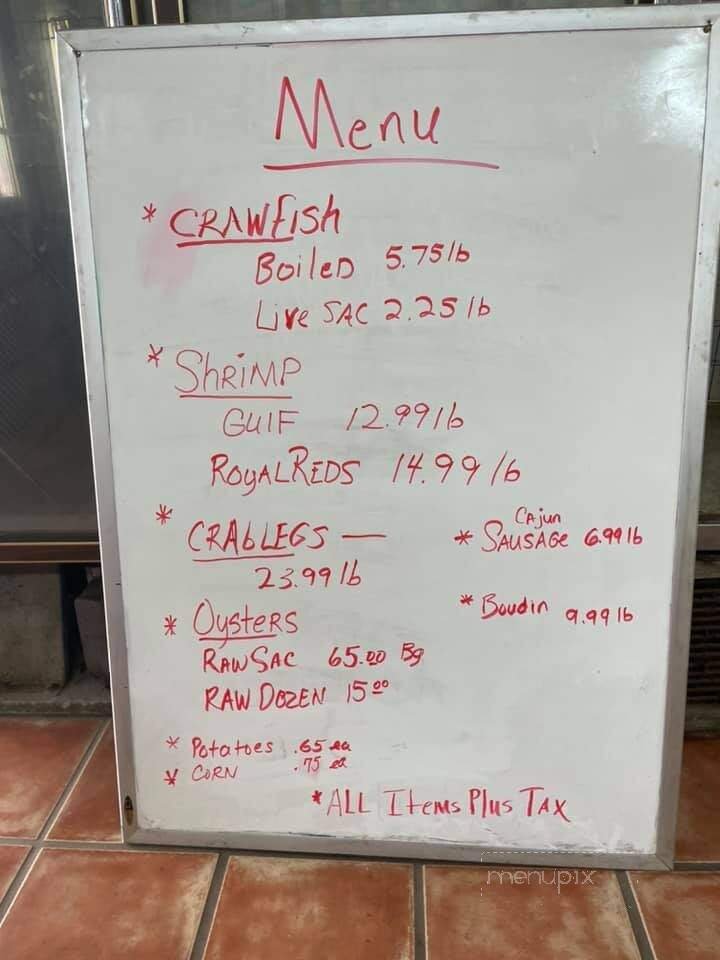 Menu
* CRAWFish
Boiled 5.75 lb
Live SAC 2.25 lb
* SHRiMP
GUlF 12.99 lb
RoyAL REDS 14.99 lb
* CRAb LEGS —
23.99 lb
* CAjun
SAUSAGe 6.99 lb
* Boudin 9.99 lb
* OysteRS
RAW SAC 65.00 Bg
RAW DOZEN 15.00
* Potatoes .65 ea
* CORN .75 ea
* ALL Items Plus TAX
menupix